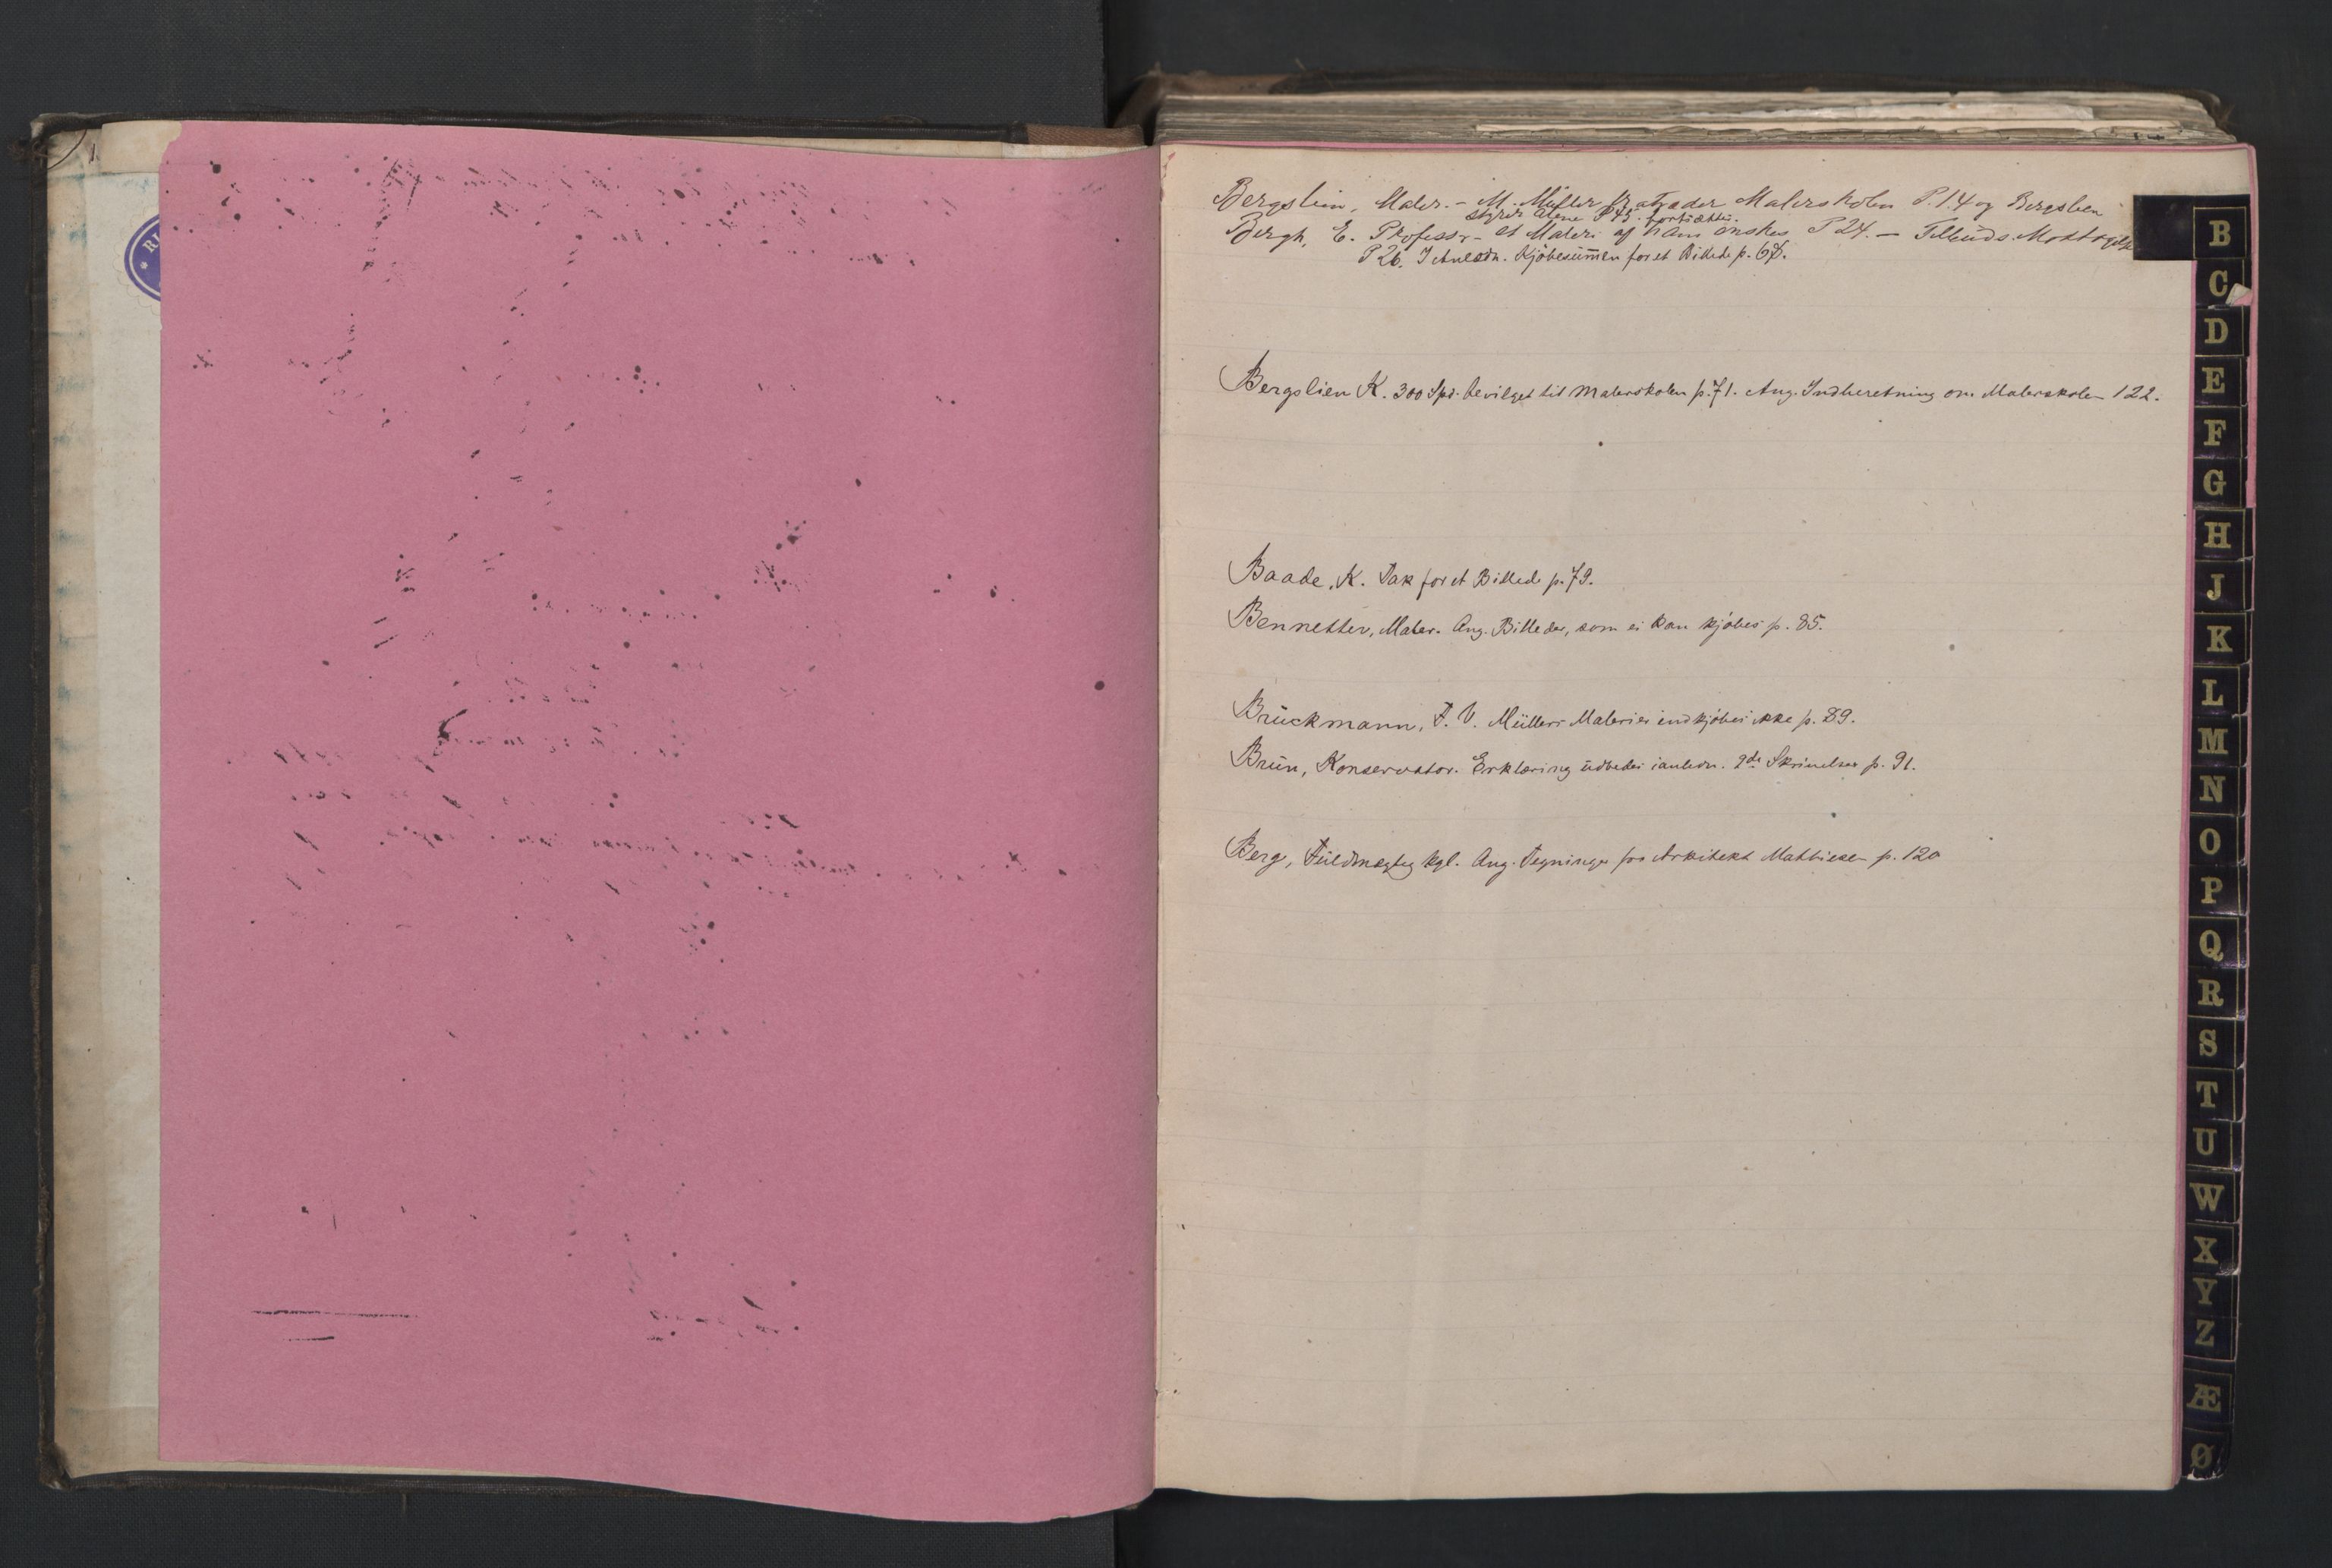 Bergslien, Maler. - M. Müller fratræder Malerskolen P. 14 og Bergslien
styrer alene P 45. fortsættes.
Bergh, E. Professor - et Maleri af ham önskes P 24. - Tilbuds. Modtagelse
P 26. I Anledn. Kjöbesummen for et Billede p. 68.
Bergslien K. 300 Spd. bevilget til Malerskolen p. 71. Ang. Indberetning om Malerskolen 122.
Baade, K. Tak for et Billede p. 79.
Bennetter, Maler. Ang. Billeder, som ei kan kjöbes p. 85.
Brückmann, F. V. Müllers Malerier indkjöbes ikke p. 89.
Brün, Konservator. Erklæring üdbedes i anledn. 2de Skrivelser p. 91.
Berg, Füldmægtig kgl. Ang. Tegninger fra Arkitekt Mathiesen p. 120
B
C
D
E
F
G
H
J
K
L
M
N
O
P
Q
R
S
T
U
W
X
Y
Z
Æ
Ø